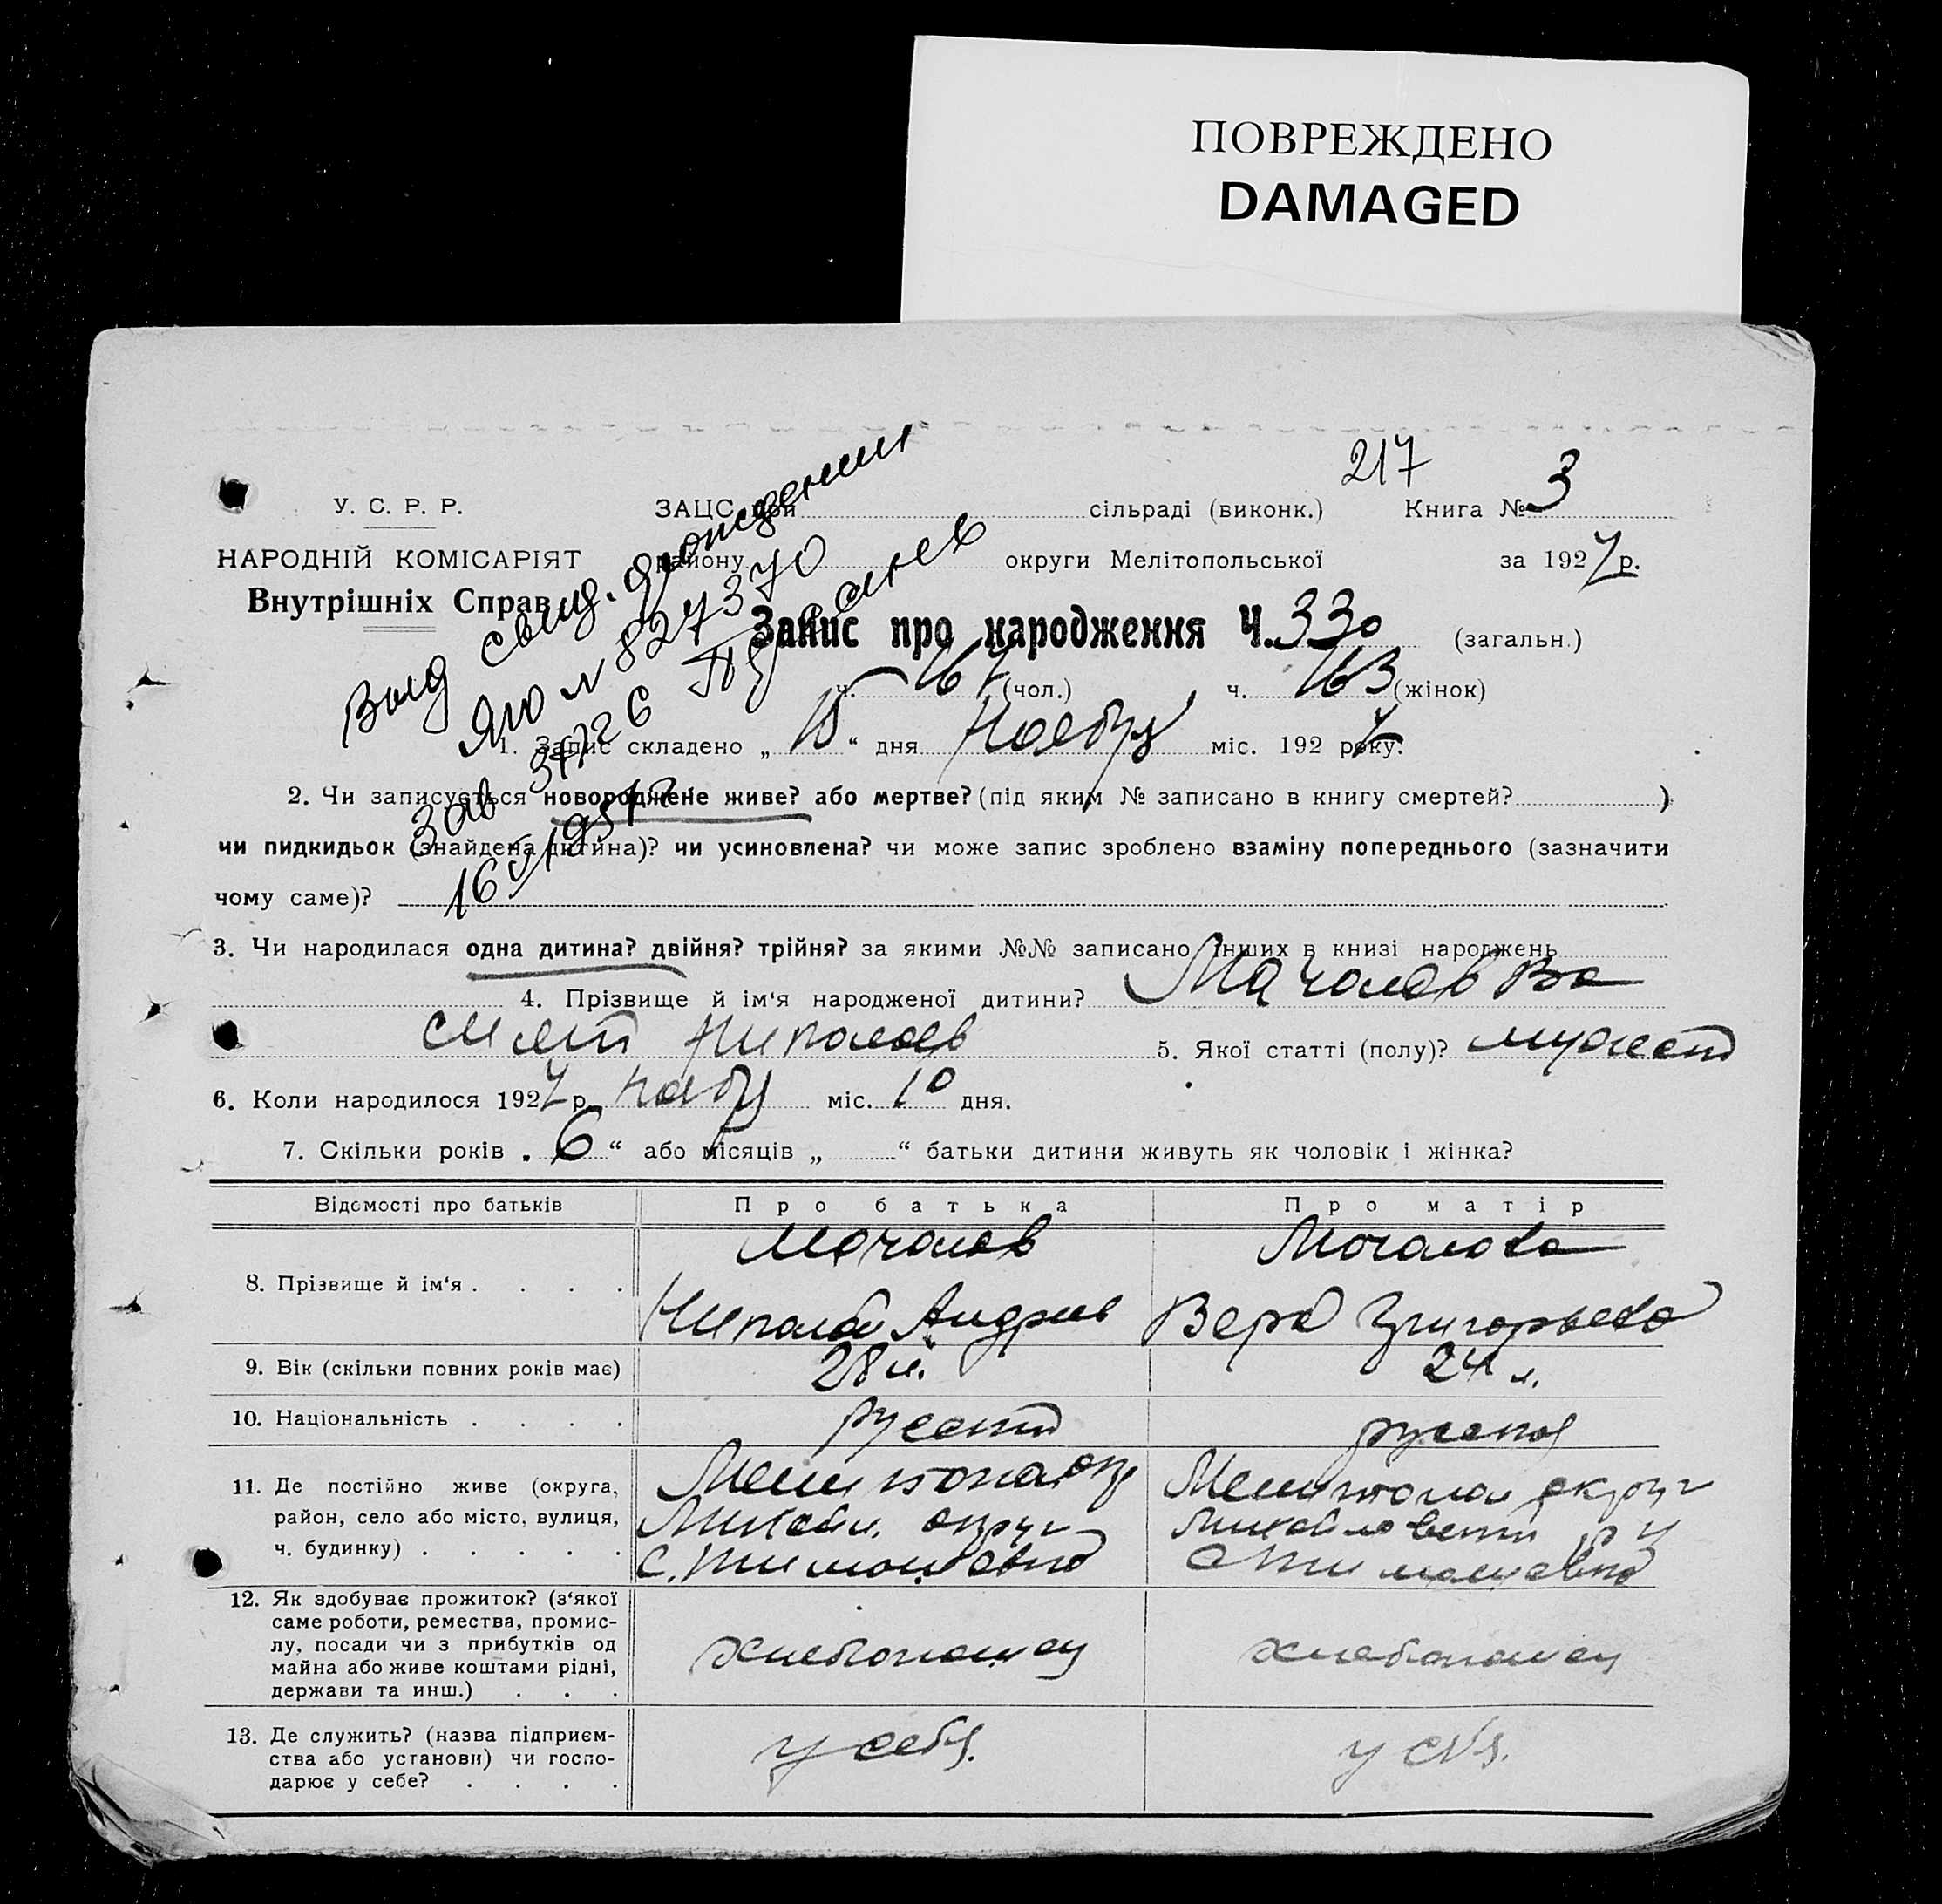 ПОВРЕЖДЕНО
DAMAGED
217
У. С. Р. Р. ЗАЦС при сільраді (виконк.) Книга № 3
НАРОДНІЙ КОМІСАРІЯТ району округи Мелітопольської за 1927 р.
Внутрішніх Справ
Выд свид. о рождении
ЯЮ № 827370
Запис про народження Ч. 330 (загальн.)
ч. 167 (чол.) ч. 163 (жінок)
1. Запис складено „ 15 “ дня Ноябр міс. 1927 року.
2. Чи записується новороджене живе? або мертве? (під яким № записано в книгу смертей? )
чи пидкидьок (знайдена дитина)? чи усиновлена? чи може запис зроблено взаміну попереднього (зазначити
чому саме)?
3. Чи народилася одна дитина? двійня? трійня? за якими №№ записано інших в книзі народжень
4. Прізвище й ім'я народженої дитини? Мачалов Ва
силий Николаев 5. Якої статті (полу)? мужест
6. Коли народилося 1927 р. Нояб міс. 10 дня.
7. Скільки років „ 6 “ або місяців „ “ батьки дитини живуть як чоловік і жінка?
Відомості про батьків Про батька Про матір
8. Прізвище й ім'я . . . . Мочалов Мочалова
Николай Андреев Вера Григорьева
9. Вік (скільки повних років має) 28 л. 24 л.
10. Національність . . . . русский русская
11. Де постійно живе (округа, Мелитопол окр Мелитопол округ
район, село або місто, вулиця, Михайл. округ Михайловский р-н
ч. будинку) . . . . . С. Тимошевка С Тимошевка
12. Як здобуває прожиток? (з'якої
саме роботи, ремества, промис-
лу, посади чи з прибутків од хлебопашец хлебопашец
майна або живе коштами рідні,
держави та инш.) . . .
13. Де служить? (назва підприєм- у себя. у себя.
ства або установи) чи госпо-
дарює у себе? . . . .